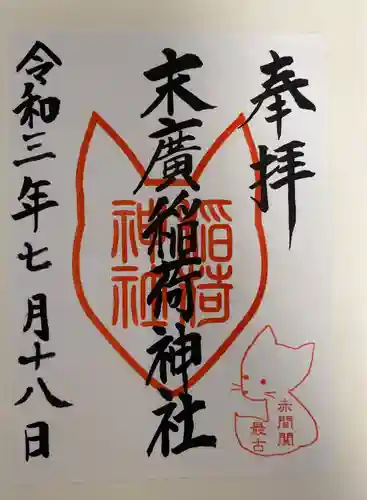 奉拝
末廣稲荷神社
稲荷
神社
令和三年七月十八日
赤間關
最古